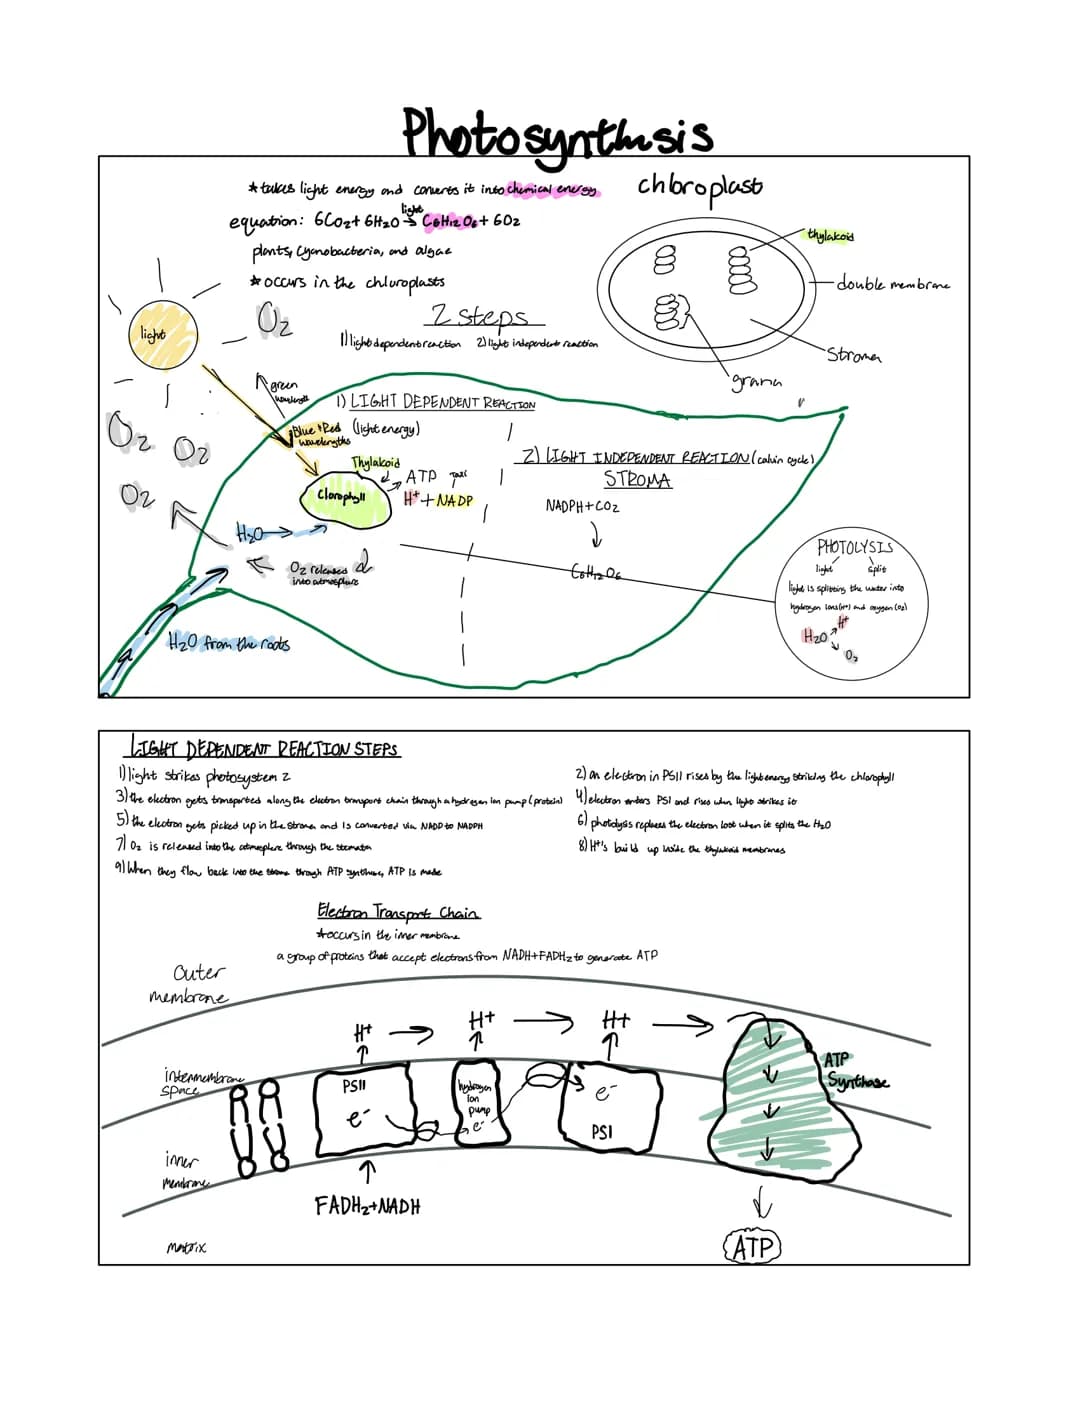 Photosynthesis
*takes light energy and converts it into chemical energy
light
equation: 6CO2+6H2O → C6H12O6+6O2
plants, Cyanobacteria, and algae
*occurs in the chloroplasts
chloroplast
thylakoid
double membrane
Stroma
grana
2 steps
1) light dependent reaction 2) light independent reaction
light
O2
O2
O2
O2
green
wavelength
1) LIGHT DEPENDENT REACTION
Blue + Red
wavelengths
(light energy)
Thylakoid
Clorophyll
ATP
H+ + NADP
H2O
O2 released
into atmosphere
H2O from the roots
2) LIGHT INDEPENDENT REACTION (calvin cycle)
STROMA
NADPH+CO2
C6H12O6
PHOTOLYSIS
light split
light is splitting the water into
hydrogen ions(H+) and oxygen (O2)
H2O
H+
O2
LIGHT DEPENDENT REACTION STEPS
1) light strikes photosystem 2
2) an electron in PSII rises by the light energy striking the chlorophyll
3) the electron gets transported along the electron transport chain through a hydrogen ion pump (protein)
4) electron enters PSI and rises when light strikes it
5) the electron gets picked up in the stroma and is converted via NADP to NADPH
6) photolysis replaces the electron lost when it splits the H2O
7) O2 is released into the atmosphere through the stomata
8) H+'s build up inside the thylakoid membranes
9) When they flow back into the stroma through ATP synthase, ATP is made
Electron Transport Chain
*occurs in the inner membrane
a group of proteins that accept electrons from NADH+FADH2 to generate ATP
Outer
membrane
H+
H+
H+
intermembrane
space
PSII
e-
hydrogen
Ion
pump
e-
e-
PSI
ATP
Synthase
inner
membrane
FADH2+NADH
matrix
ATP